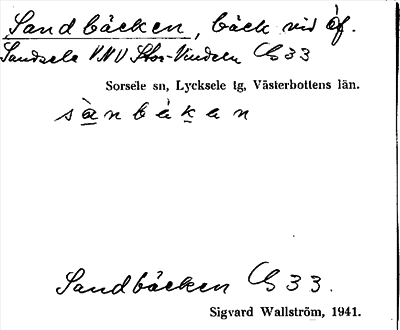 Sandbäcken, bäck vid åf.
Sandsele VNV Stor-Vindeln Cb 33
Sorsele sn, Lycksele tg, Västerbottens län.
sànbä̀kan
Sandbäcken Cb 33.
Sigvard Wallström, 1941.